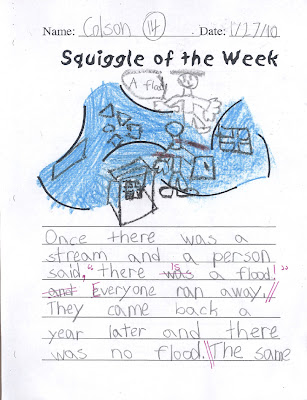 Name: Colson 14 . Date: 1/27/10
Squiggle of the Week
A flood
Once there was a
stream and a person
said, "there was is a flood!"
and Everyone ran away.//
They came back a
year later and there
was no flood.// The same